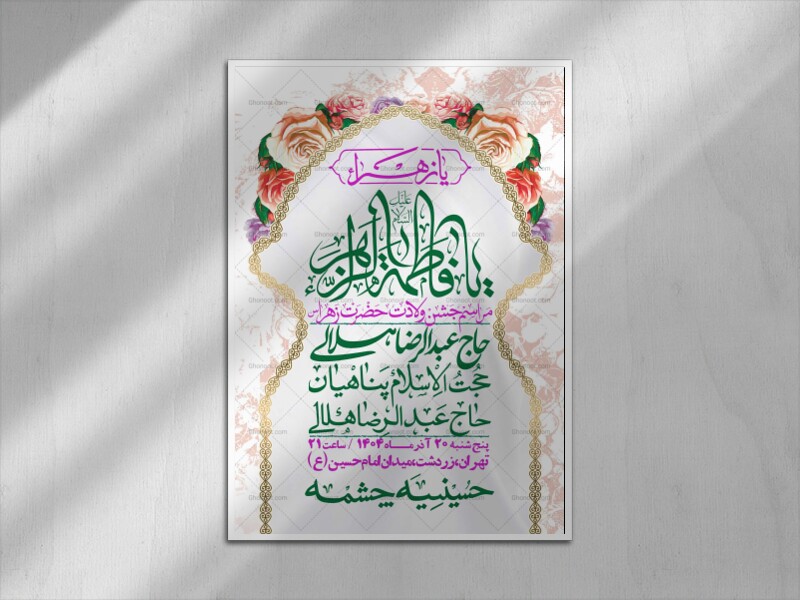 یا زهراء
علیها السلام
یا فاطمة الزهراء
مراسم جشن ولادت حضرت زهرا س
حاج عبدالرضا هلالی
حجت الاسلام پناهیان
حاج عبدالرضا هلالی
پنج شنبه ۲۰ آذر ماه ۱۴۰۴ / ساعت ۲۱
تهران، زردشت، میدان امام حسین (ع)
حسینیه چشمه
Ghonoot.com